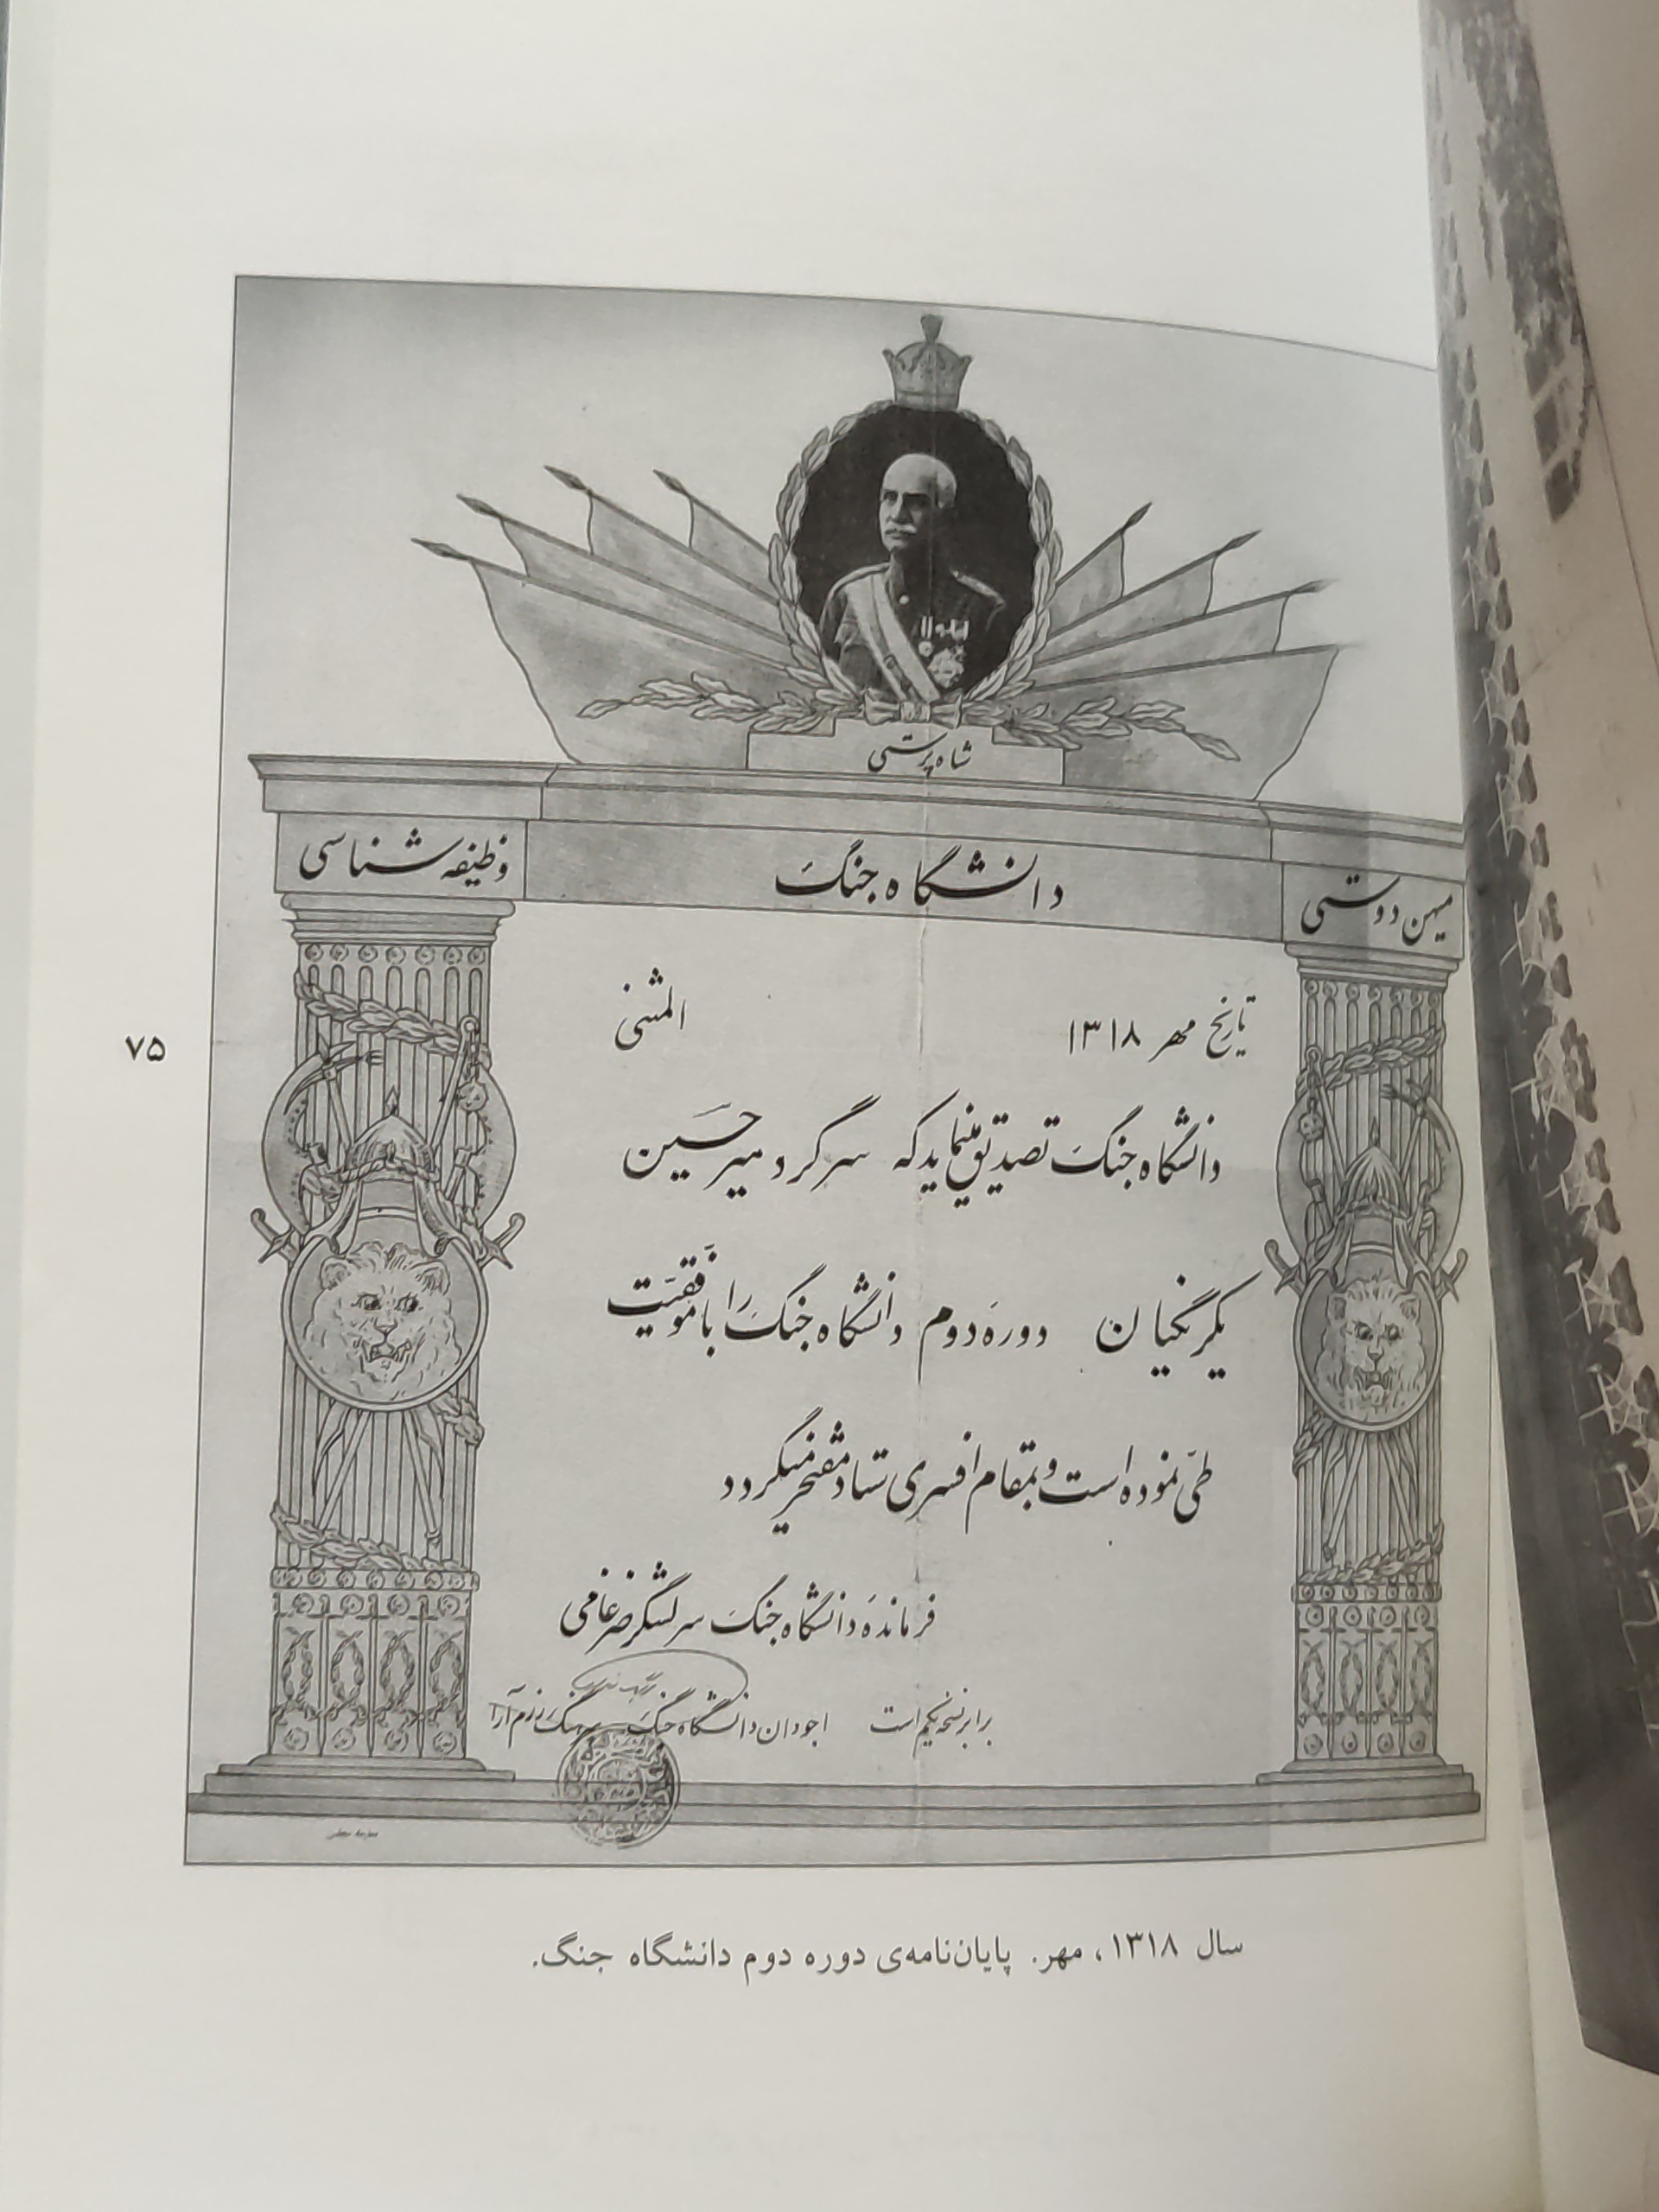 شاه پرستی
میهن دوستی
دانشگاه جنگ
وظیفه شناسی
تاریخ مهر ۱۳۱۸
المثنی
دانشگاه جنگ تصدیق مینماید که سرگرد میرحسین
یکرنگیان دوره دوم دانشگاه جنگ را با موفقیت
طی نموده است و بمقام افسری ستاد مفتخر میگردد
فرمانده دانشگاه جنگ سرلشگر ضرغامی
برابر نسخه یکم است اجودان دانشگاه جنگ سرهنگ رزم آرا
۷۵
سال ۱۳۱۸، مهر. پایان‌نامه‌ی دوره دوم دانشگاه جنگ.